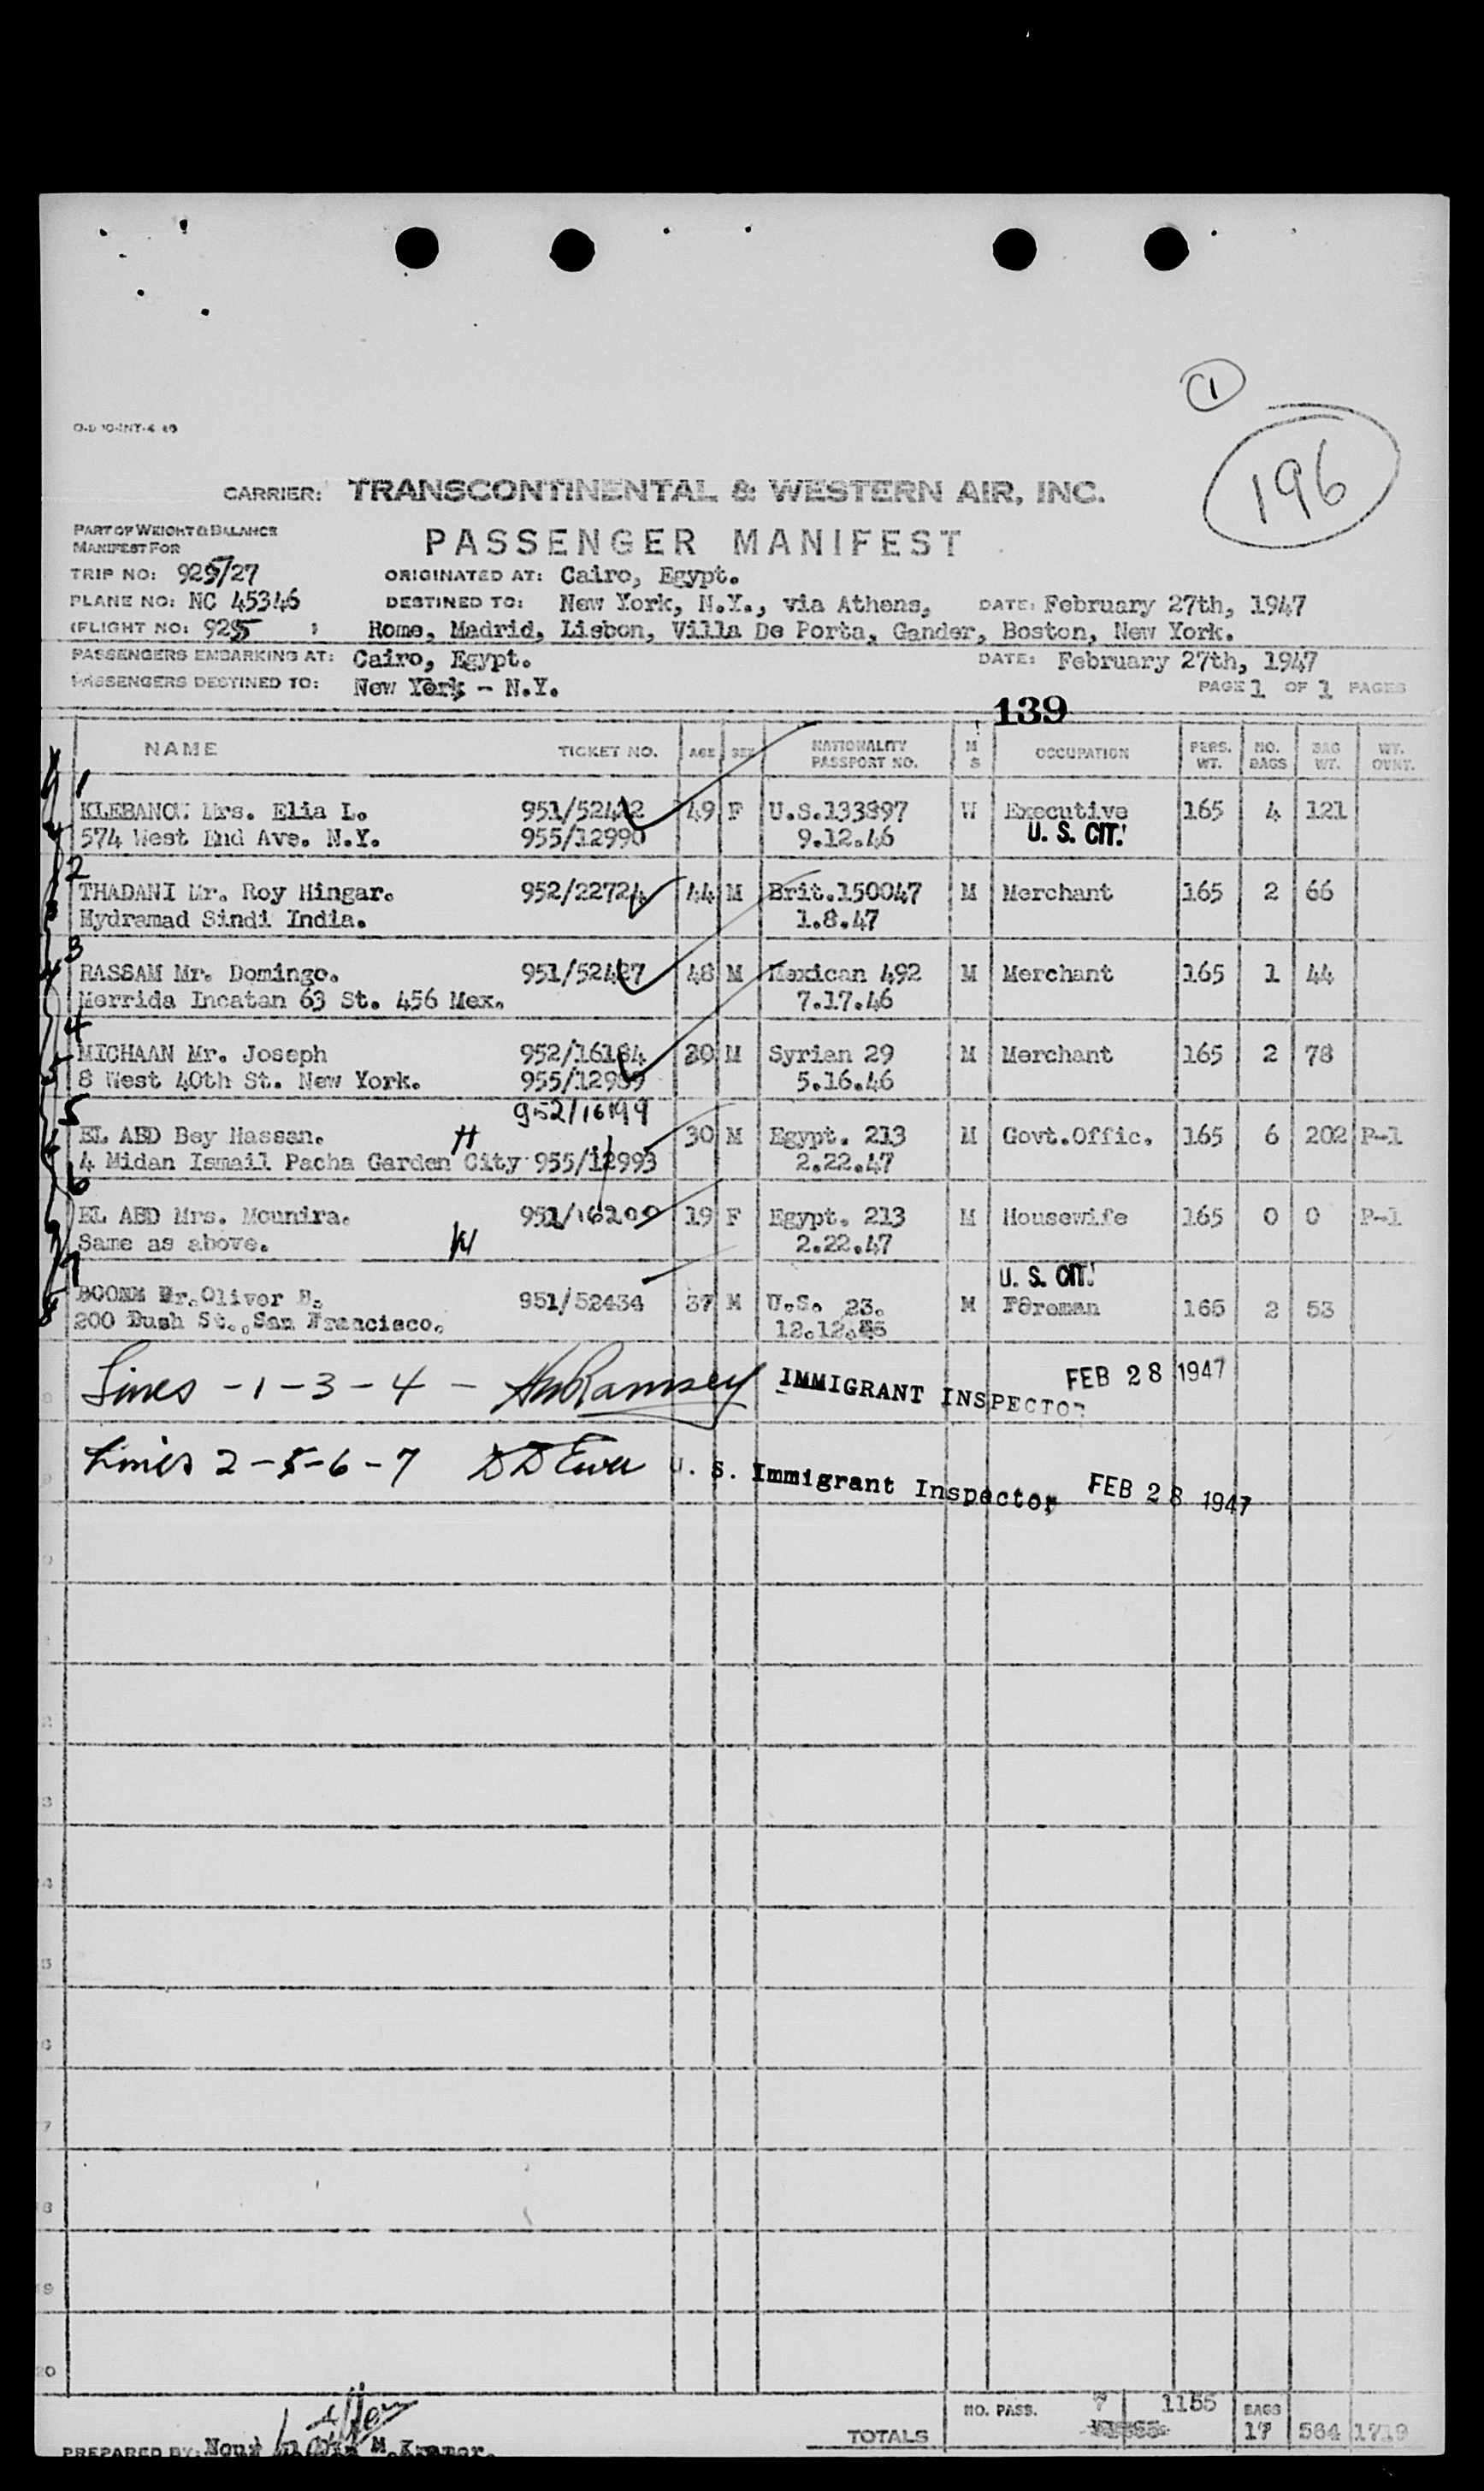 1
196
CARRIER: TRANSCONTINENTAL & WESTERN AIR, INC.
PART OF WEIGHT & BALANCE
MANIFEST FOR
PASSENGER MANIFEST
TRIP NO: 925/27 ORIGINATED AT: Cairo, Egypt.
PLANE NO: NC 45346 DESTINED TO: New York, N.Y., via Athens, DATE: February 27th, 1947
(FLIGHT NO: 925 ) Rome, Madrid, Lisbon, Villa De Porta, Gander, Boston, New York.
PASSENGERS EMBARKING AT: Cairo, Egypt. DATE: February 27th, 1947
PASSENGERS DESTINED TO: New York - N.Y. PAGE 1 OF 1 PAGES
139
NAME TICKET NO. AGE SEX NATIONALITY PASSPORT NO. M S OCCUPATION PERS. WT. NO. BAGS BAG WT. WT. OVNT.
1
KLEBANOW Mrs. Elia L. 951/52432 49 F U.S.133897 W Executive 165 4 121
574 West End Ave. N.Y. 955/12990 9.12.46 U. S. CIT.
2
THADANI Mr. Roy Hingar. 952/22724 44 M Brit.150047 M Merchant 165 2 66
Hydramad Sindi India. 1.8.47
3
RASSAM Mr. Domingo. 951/52427 48 M Mexican 492 M Merchant 165 1 44
Merrida Incatan 63 St. 456 Mex. 7.17.46
4
MICHAAN Mr. Joseph 952/16184 30 M Syrian 29 M Merchant 165 2 78
8 West 40th St. New York. 955/12989 5.16.46
5 952/16199
EL ABD Bey Hassan. H 30 M Egypt. 213 M Govt.Offic. 165 6 202 P-1
4 Midan Ismail Pacha Garden City 955/12993 2.22.47
6
EL ABD Mrs. Mounira. 951/16200 19 F Egypt. 213 M Housewife 165 0 0 P-1
Same as above. W 2.22.47
7 U. S. CIT.
Mr. Oliver B. 951/52434 37 M U.S. 23. M Foreman 165 2 53
200 Bush St., San Francisco. 12.12.
Lines - 1 - 3 - 4 - Ramsey IMMIGRANT INSPECTOR FEB 28 1947
Lines 2 - 5 - 6 - 7 U. S. Immigrant Inspector FEB 28 1947
NO. PASS. 7 1155 BAGS
TOTALS 17 564 1719
PREPARED BY: